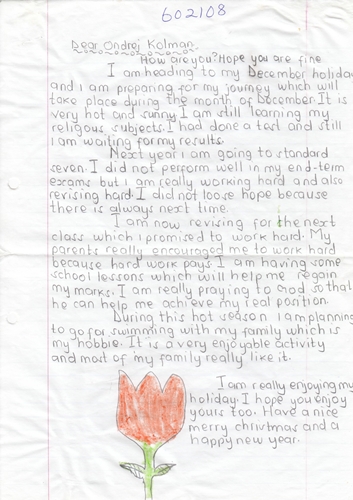 602108
Dear Ondrej Kolman.
How are you? Hope you are fine.
I am heading to my December holiday
and I am preparing for my journey which will
take place during the month of December. It is
very hot and sunny. I am still learning my
religous subjects. I had done a test and still
I am waiting for my results.
Next year I am going to standard
seven. I did not perform well in my end-term
exams but I am really working hard and also
revising hard. I did not loose hope because
there is always next time.
I am now revising for the next
class which I promised to work hard. My
parents really encouraged me to work hard
because hard work pays. I am having some
school lessons which will help me regain
my marks. I am really praying to God so that
he can help me achieve my real position.
During this hot season I am planning
to go for swimming with my family which is
my hobbie. It is a very enjoyable activity
and most of my family really like it.
I am really enjoying my
holiday. I hope you enjoy
yours too. Have a nice
merry christmas and a
happy new year.